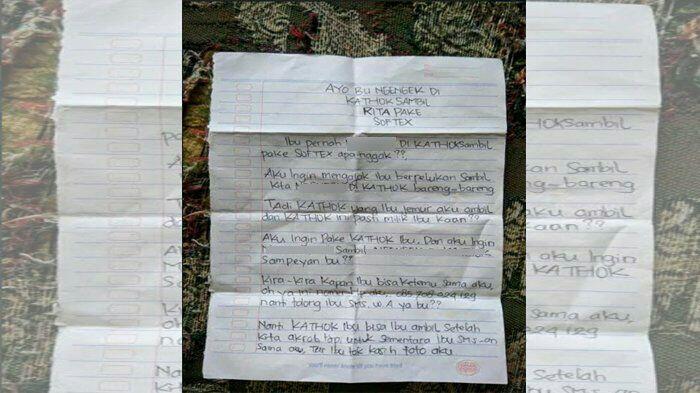 AYO BU NGENGEK DI
KATHOK SAMBIL
KITA PAKE
SOFTEX
Ibu pernah DI KATHOK Sambil
pake SOFTEX apa nggak??,
AKU Ingin mengajak Ibu berpelukan Sambil
Kita DI KATHOK bareng-bareng
Tadi KATHOK yang Ibu Jemur aku ambil
dan KATHOK ini pasti milik Ibu Kaan??
AKU Ingin Pake KATHOK Ibu. Dan aku Ingin
Sambil
Sampeyan bu??
Kira-Kira Kapan Ibu bisa Ketemu Sama aku,
oh ya ini nomer
nanti tolong Ibu SMS. W.A ya bu??
Nanti KATHOK Ibu bisa Ibu ambil Setelah
Kita akrab tapi untuk Sementara Ibu SMS-an
Sama aku, Ibu tak kasih foto aku
You'll never know till you have tried